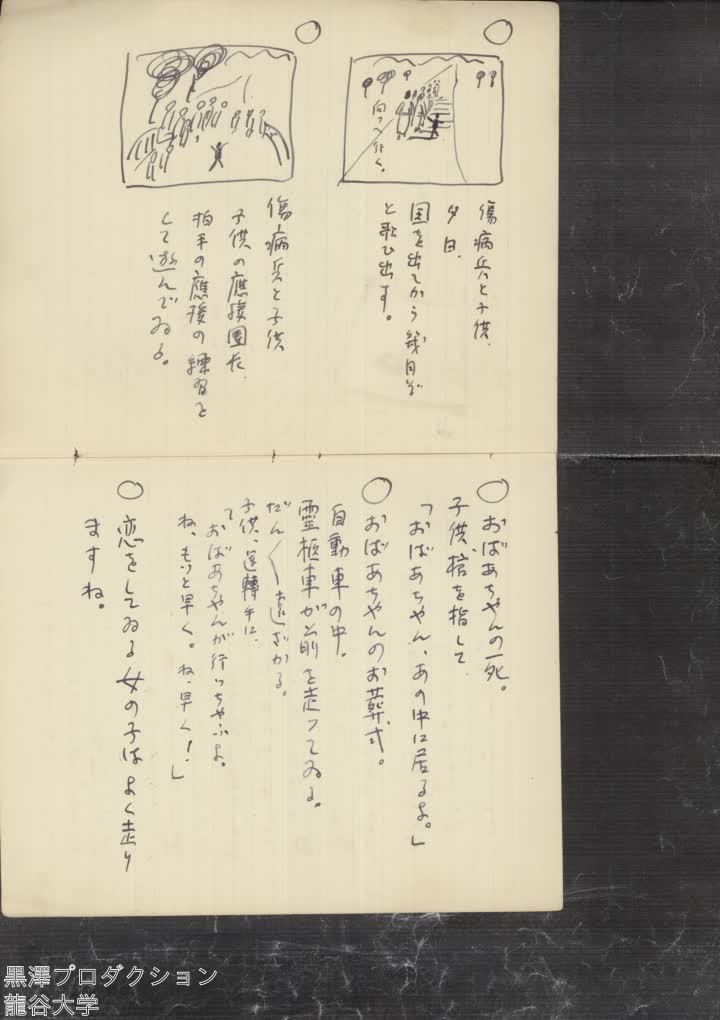 ○
向フへ行く。
傷病兵と子供、
夕日、
国を出てから幾月ぞ
と歌ひ出す。
○
傷病兵と子供
子供の應援團だ
拍手の應援の練習を
して遊んでゐる。
○おばあちやんの死。
子供、棺を指して
「おばあちやん、あの中に居るよ。」
○おばあちやんのお葬式。
自動車の中。
霊柩車が前を走つてゐる。
だん〱遠ざかる。
子供、運轉手に、
「おばあちやんが行つちやふよ。
ね、もつと早く。ね、早く！」
○恋をしてゐる女の子はよく走り
ますね。
黒澤プロダクション
龍谷大学